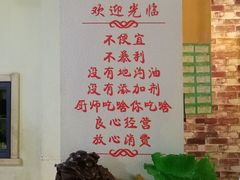 欢迎光临
不便宜
不暴利
没有地沟油
没有添加剂
厨师吃啥你吃啥
良心经营
放心消费